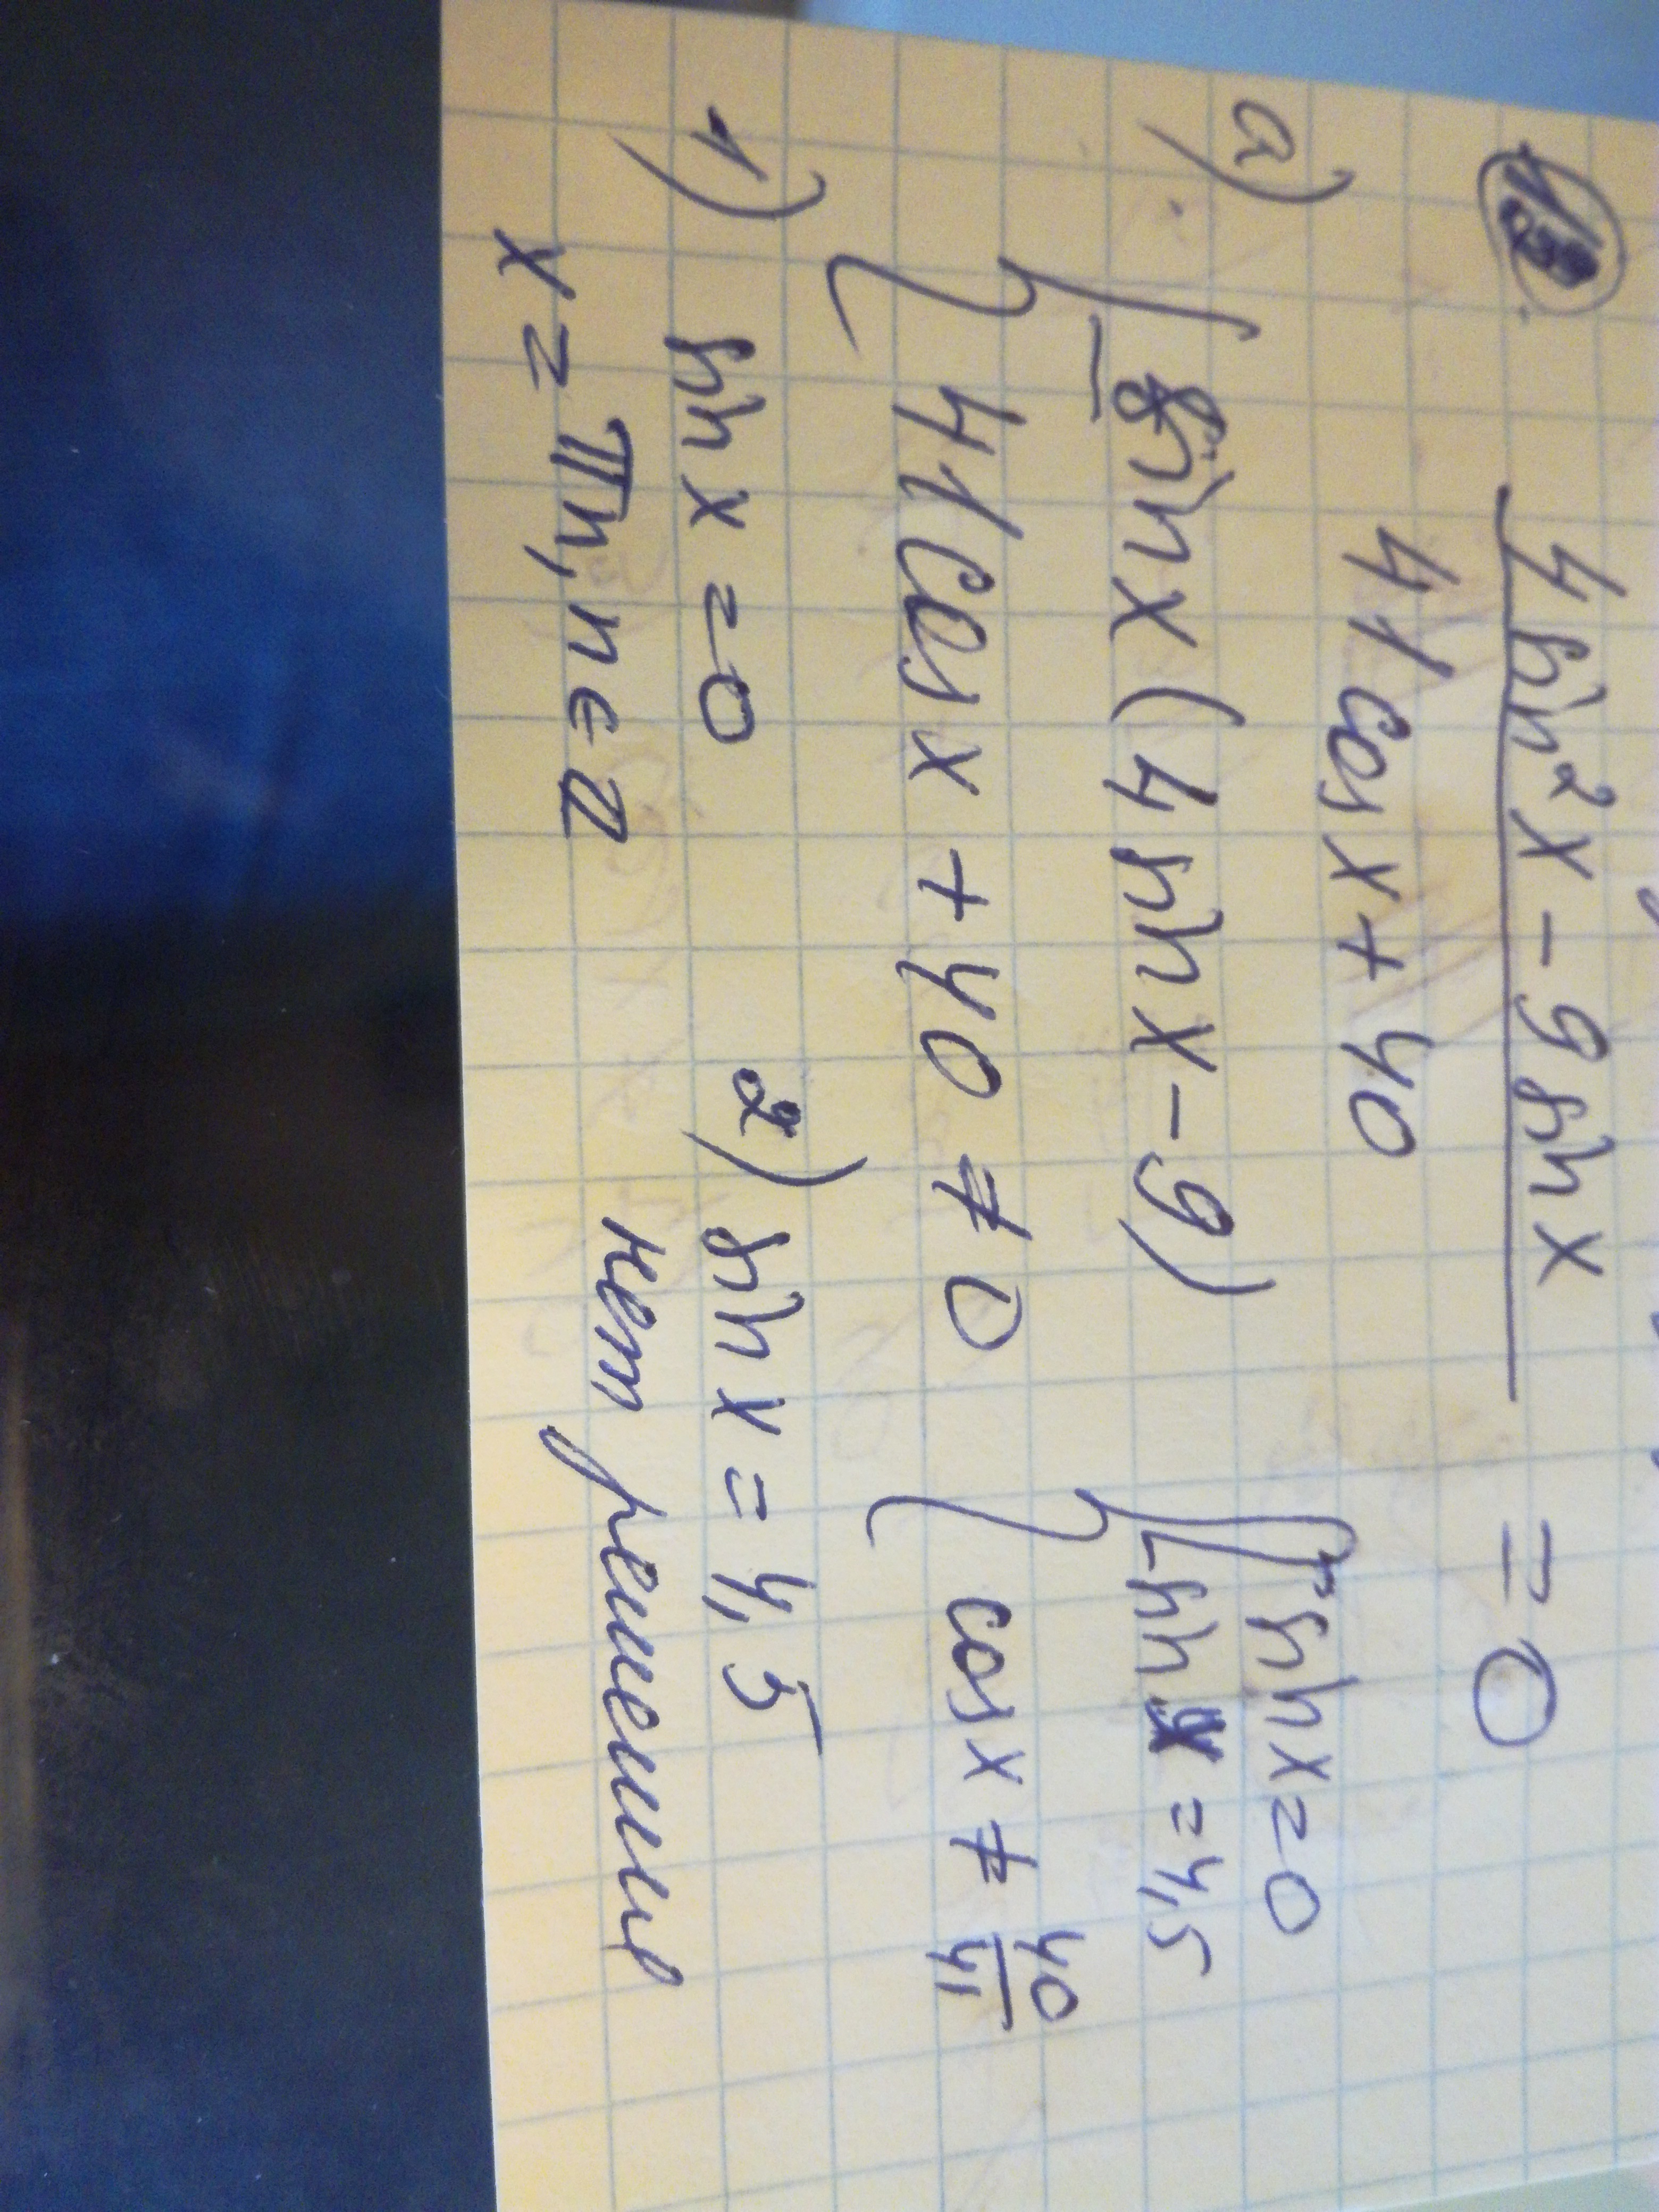 4 sin²x - 9 sin x
41 cos x + 40
= 0
а)
sin x (4 sin x - 9)
41 cos x + 40 ≠ 0
sin x = 0
sin x = 4,5
cos x ≠ 40/41
1) sin x = 0
x = πn, n ∈ Z
2) sin x = 4,5
нет решений